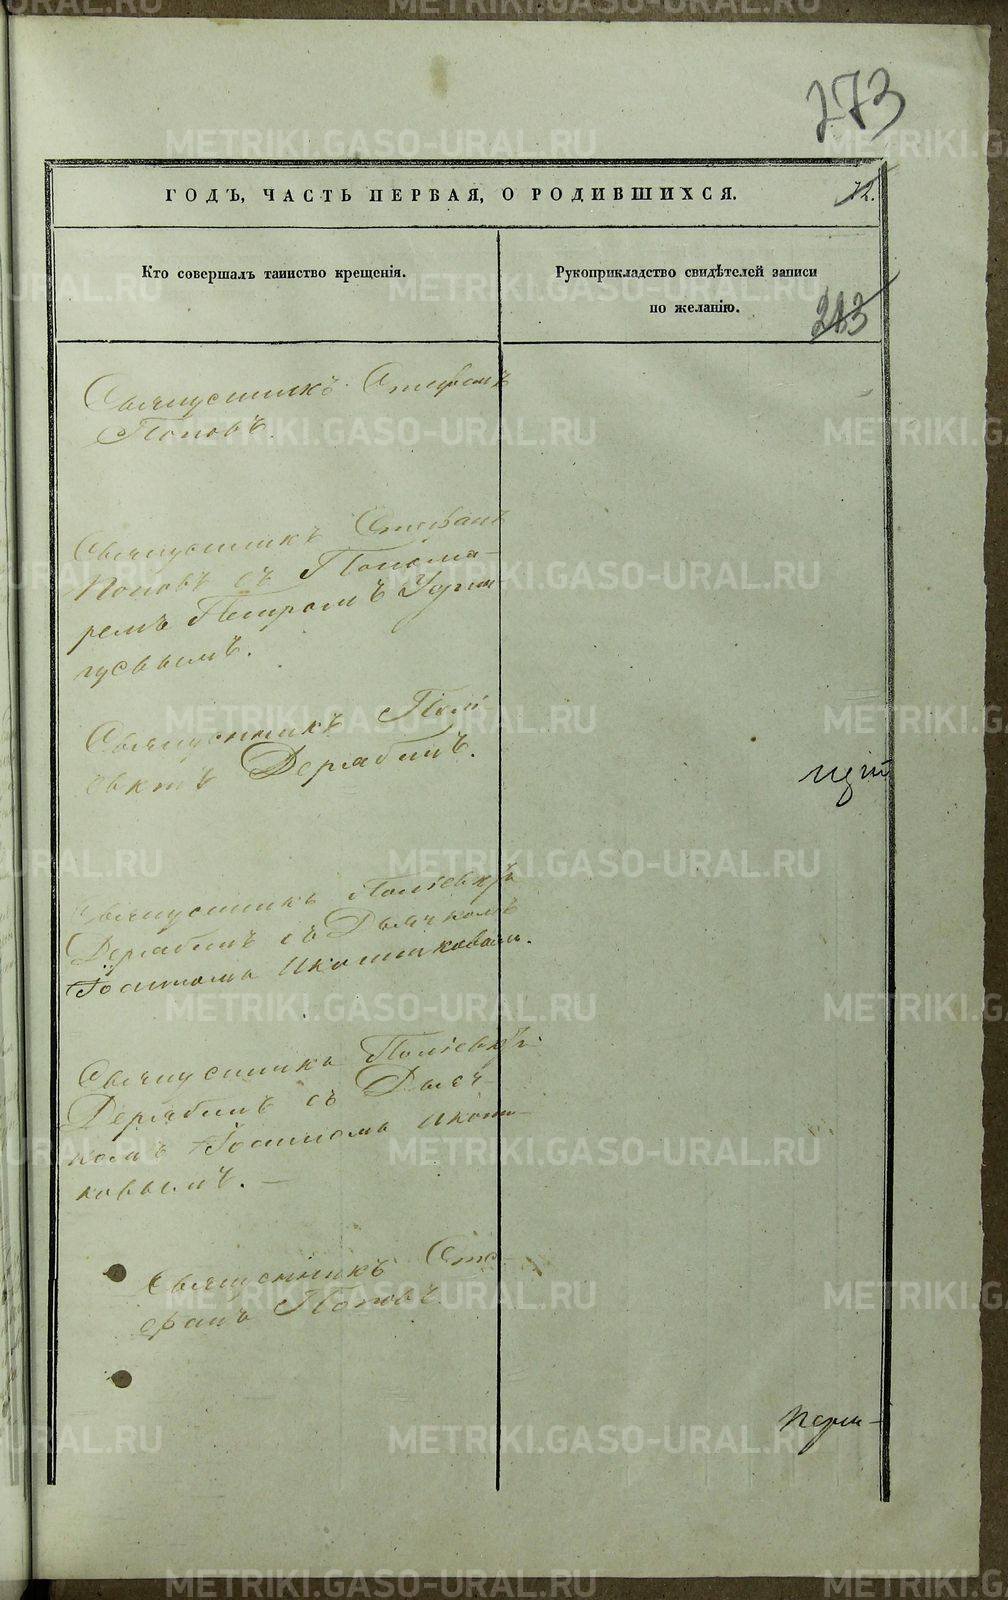 273
ГОДЪ, ЧАСТЬ ПЕРВАЯ, О РОДИВШИХСЯ.
72.
Кто совершалъ таинство крещенія.
Рукоприкладство свидѣтелей записи
по желанію.
Священникъ Стефанъ
Поповъ.
Священникъ Стефанъ
Поповъ съ Понома-
ремъ Петромъ
Священникъ Полі-
евктъ Дерябинъ.
Священникъ Поліевктъ
Дерябинъ съ Дьячкомъ
Священникъ Поліевктъ
Дерябинъ съ Дьяч-
комъ
Священникъ Сте-
фанъ Поповъ
METRIKI.GASO-URAL.RU